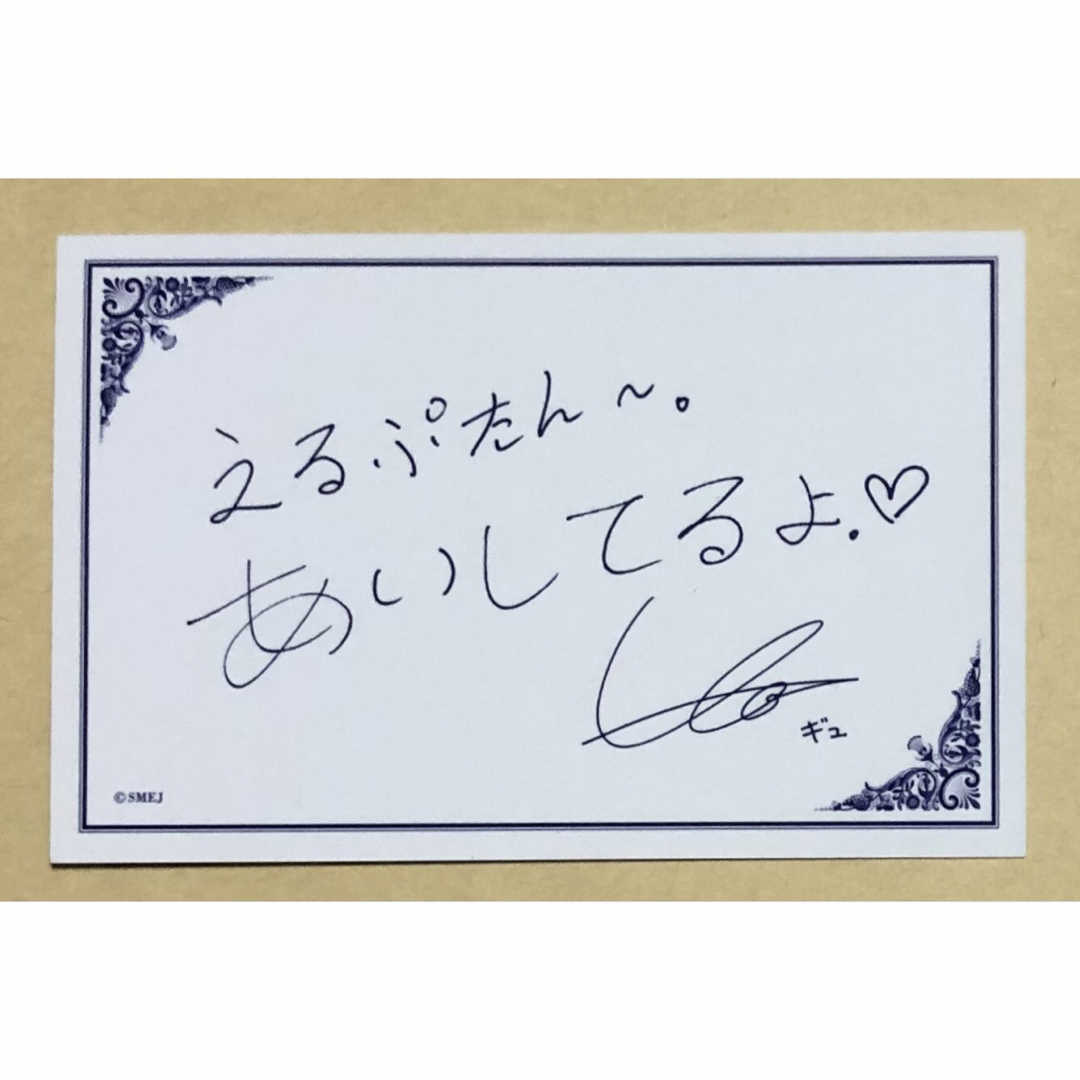 えるぷたん〜。
あいしてるよ.♡
ギュ
©SMEJ